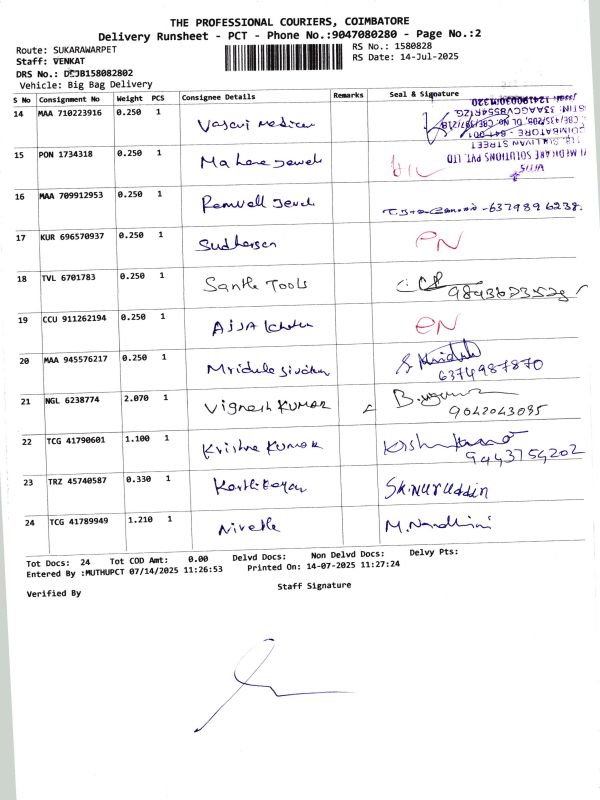 THE PROFESSIONAL COURIERS, COIMBATORE
Delivery Runsheet - PCT - Phone No.:9047080280 - Page No.:2
Route: SUKARAWARPET
RS No.: 1580828
Staff: VENKAT
RS Date: 14-Jul-2025
DRS No.: DEJB158082802
Vehicle: Big Bag Delivery
S No Consignment No Weight PCS Consignee Details Remarks Seal & Signature
14 MAA 710223916 0.250 1 Vasavi medical
COIMBATORE - 641 001
SULLIVAN STREET
MEDICARE SOLUTIONS PVT. LTD
15 PON 1734318 0.250 1 Mahave Jewel
16 MAA 709912953 0.250 1 Jewel -6379896238.
17 KUR 696570937 0.250 1 Sudharsan PN
18 TVL 6701783 0.250 1 Santhe Tools
19 CCU 911262194 0.250 1 PN
20 MAA 945576217 0.250 1 Mridula 6374987870
21 NGL 6238774 2.070 1 Vignesh Kumar 9042043095
22 TCG 41790601 1.100 1 Krishna Kumar 9443754202
23 TRZ 45740587 0.330 1 Karthikeyan SK.NURUddin
24 TCG 41789949 1.210 1 Nivetha M.Nandhini
Tot Docs: 24 Tot COD Amt: 0.00 Delvd Docs: Non Delvd Docs: Delvy Pts:
Entered By :MUTHUPCT 07/14/2025 11:26:53 Printed On: 14-07-2025 11:27:24
Verified By Staff Signature